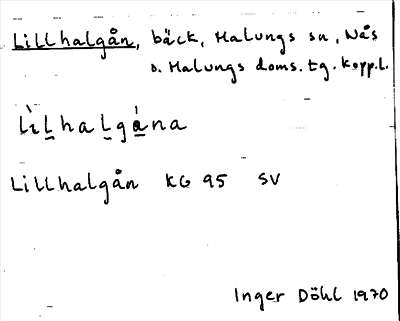 Lillhalgån, bäck, Malungs sn, Nås
o. Malungs doms. tg. Kopp.l.
Lìl̲hal̲gá̲na
Lillhalgån KG 95 SV
Inger Döhl 1970